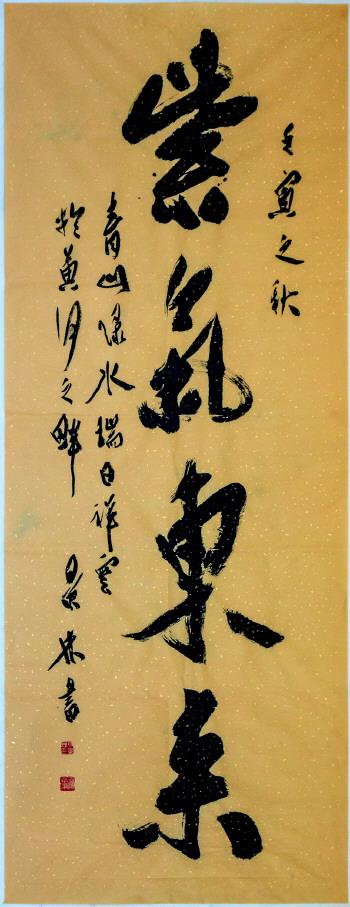 壬寅之秋
紫氣東來
青山绿水瑞日祥雲
於黄河之畔 景 書